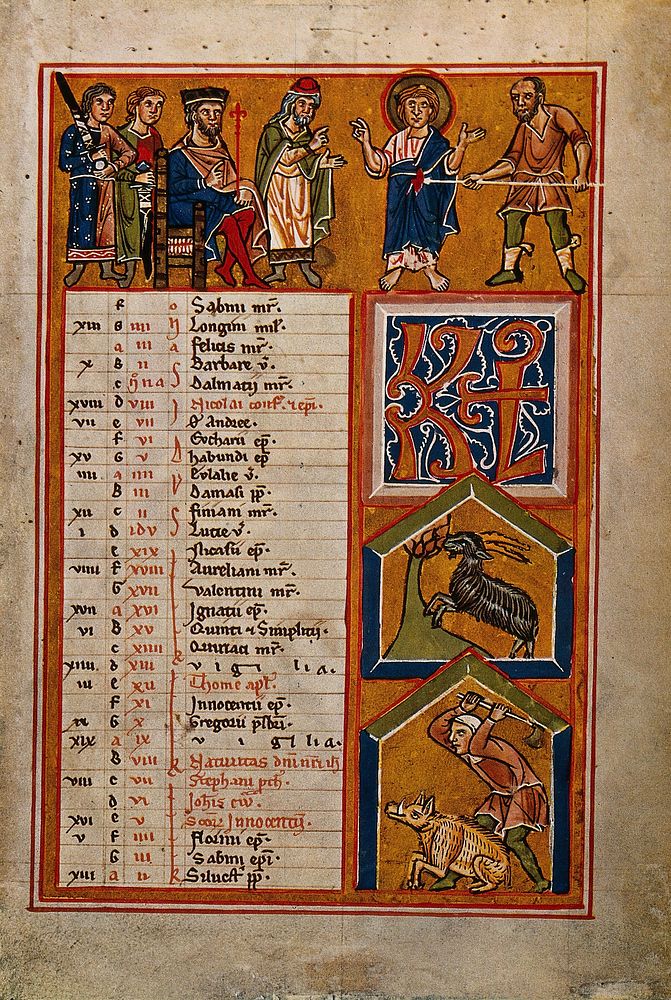 f o Sabini mr̄.
xiii G iiii N Longini mil.
a iii a felicis mr̄.
x B ii S Barbare v̄.
c Nōna Dalmatii mr̄.
xviii d viii Nicolai conf. ⁊ epī.
vii e vii S̄ Andree.
f vi Eucharii ep̄.
xv G v D habundi ep̄
iiii a iiii V Eylalie v̄.
B iii Damasi pp̄.
xii c ii S finiani mr̄.
i d idv Lucie v̄.
e xix Nicasii ep̄.
viiii f xviii Aureliani mr̄.
G xvii Valentini mr̄.
xvii a xvi Ignatii ep̄.
vi B xv Quinti ⁊ Simplitii.
c xiiii k Quiriaci mr̄.
xiiii d xiii vigilia.
iii e xii Thome apl̄.
f xi Innocentii ep̄.
xi G x Gregorii pr̄sbri.
xix a ix vigilia.
B viii k Nativitas dn̄i nr̄i ih̄
viii c vii Stephani
d vi Joh̄is
xvi e v Innocentū.
v f iiii florini ep̄.
G iii Sabini epī.
xiii a ii k Silvest pp̄.
KL